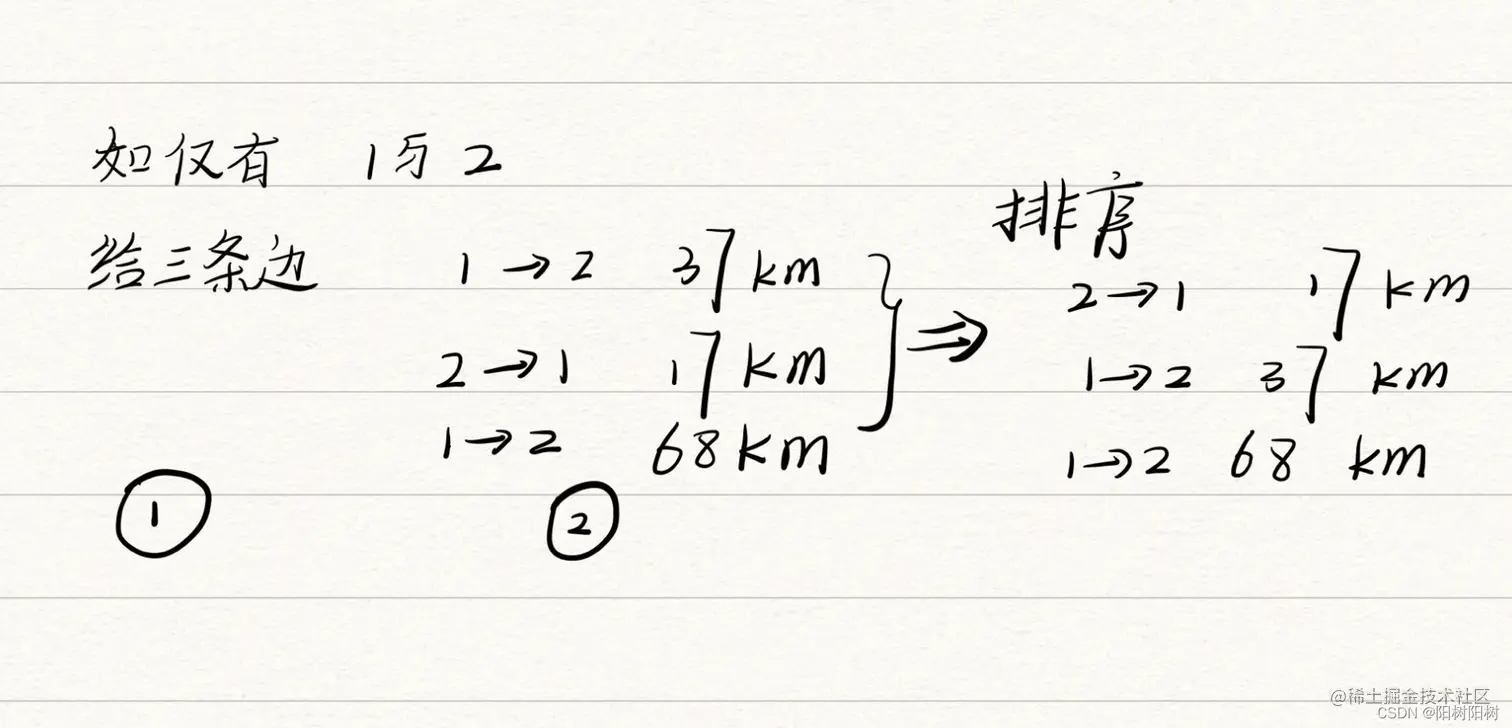 如仅有 1与2
给三条边 1→2 37km
2→1 17km
1→2 68km
⇒
排序
2→1 17km
1→2 37km
1→2 68km
① ②
@稀土掘金技术社区
CSDN @阳树阳树